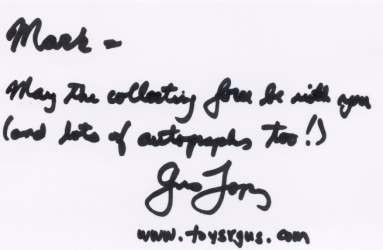 Mark -
May the collecting force be with you
(and lots of autographs too!)
Gus Lopez
www.toysrgus.com